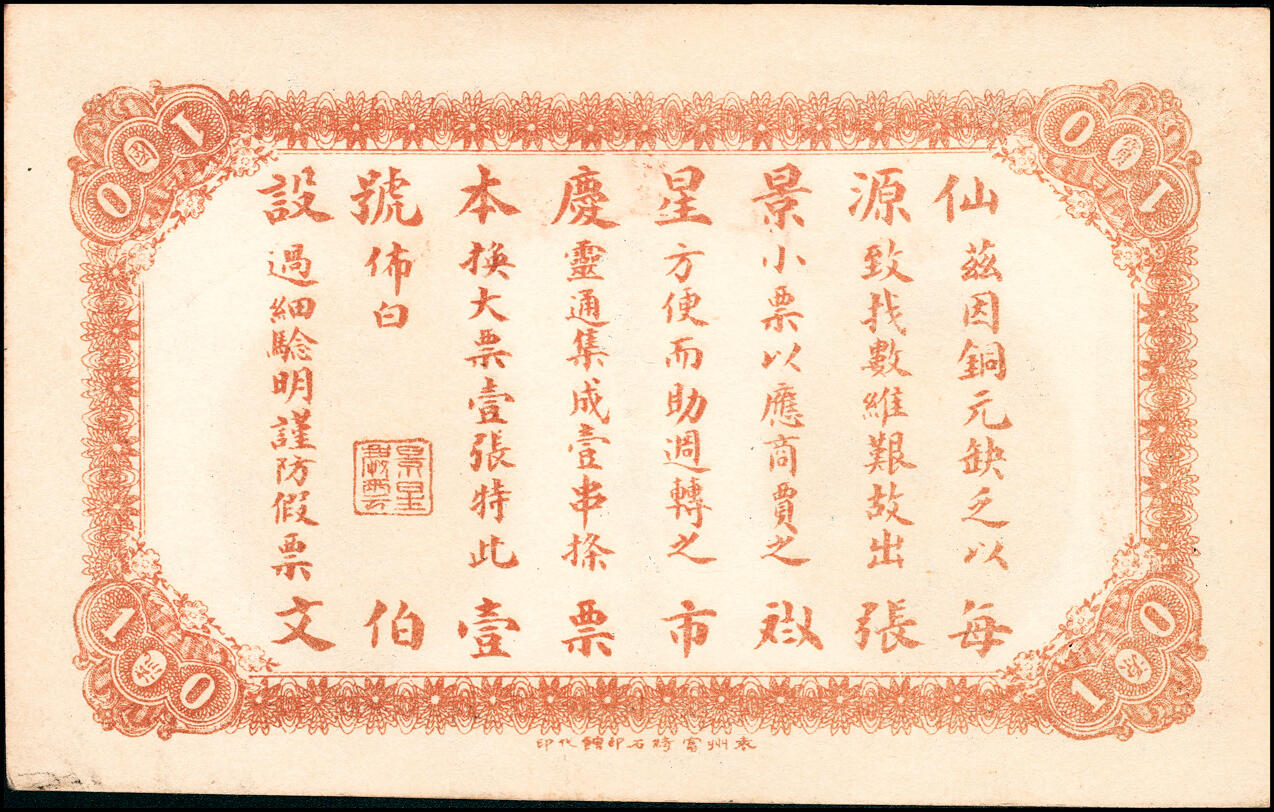 仙茲因銅元缺乏以每
源致找數維艱故出張
景小票以應商賈之
星方便而助週轉之市
慶靈通集成壹串票
本換大票壹張特此壹
號佈白伯
設過細驗明謹防假票文
景星慶雲
100
100
100
100
袁州富石印代印